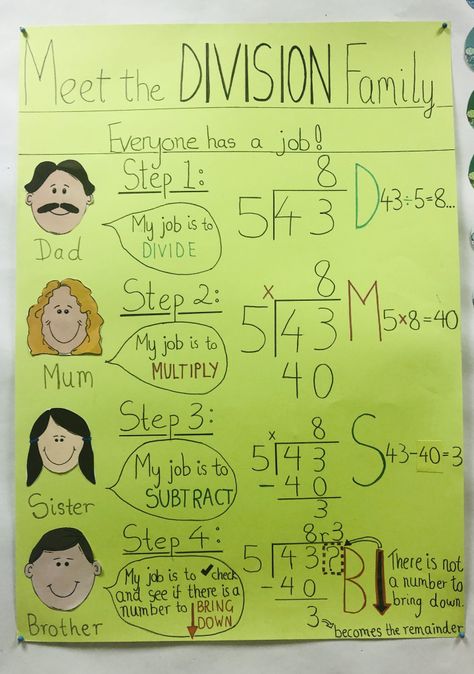 Meet the DIVISION Family
Everyone has a job!
Step 1:
My job is to
DIVIDE
Dad
8
5 43
D
43÷5=8...
Step 2:
My job is to
MULTIPLY
Mum
8
x
5 43
40
M
5x8=40
Step 3:
My job is to
SUBTRACT
Sister
8
x
5 43
-40
3
S
43-40=3
Step 4:
My job is to ✓check
and see if there is a
number to BRING
DOWN
Brother
8r3
5 43?
-40
3
B
There is not
a number to
bring down.
becomes the remainder